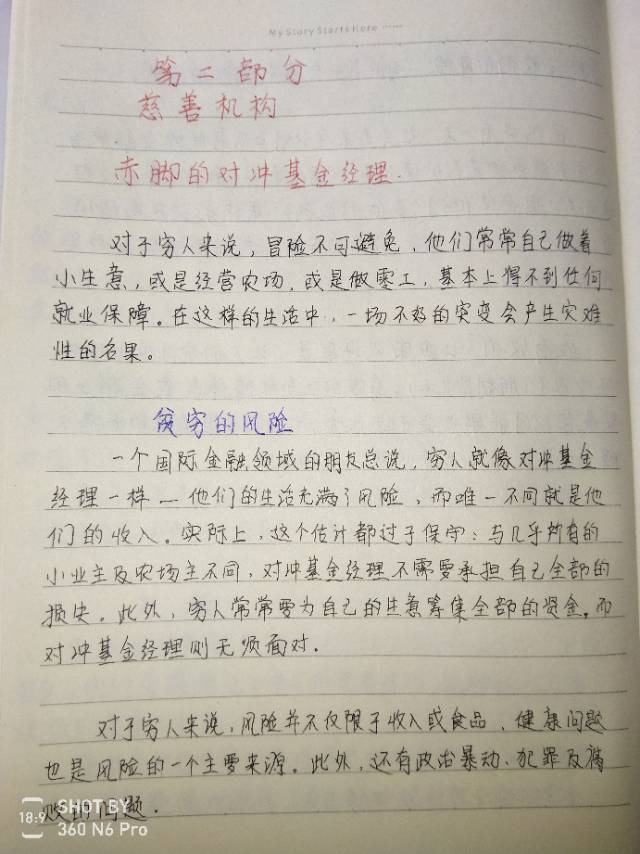 My Story Starts Here
第二部分
慈善机构
赤脚的对冲基金经理.
对于穷人来说，冒险不可避免，他们常常自己做着
小生意，或是经营农场，或是做零工，基本上得不到任何
就业保障。在这样的生活中，一场不好的突变会产生灾难
性的名果。
贫穷的风险
一个国际金融领域的朋友总说，穷人就像对冲基金
经理一样—他们的生活充满了风险，而唯一不同就是他
们的收入。实际上，这个估计都过于保守：与几乎所有的
小业主及农场主不同，对冲基金经理不需要承担自己全部的
损失。此外，穷人常常要为自己的生意筹集全部的资金。而
对冲基金经理则无须面对.
对于穷人来说，风险并不仅限于收入或食品，健康问题
也是风险的一个主要来源。此外，还有政治暴动、犯罪及腐
败的问题.
18:9 SHOT BY
360 N6 Pro